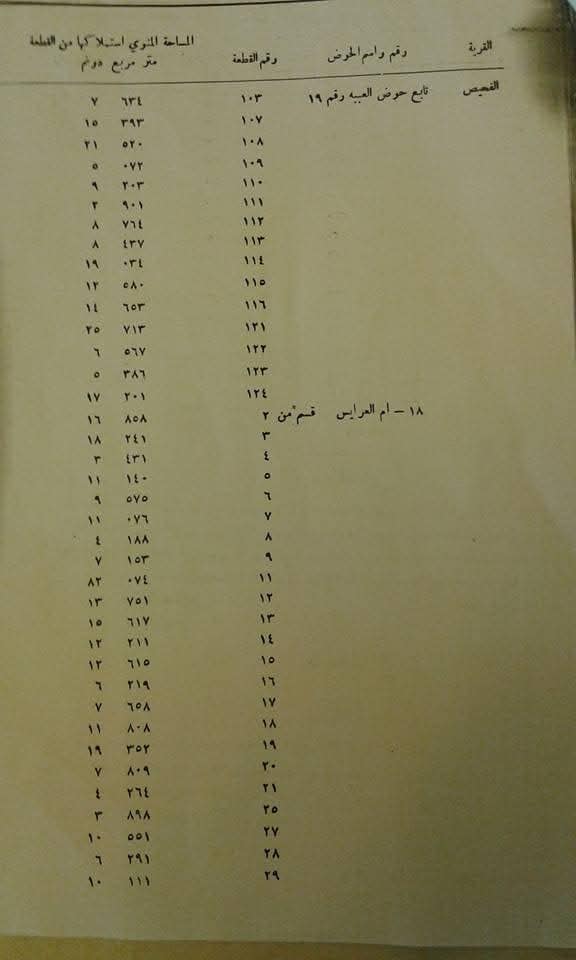 القرية رقم واسم الحوض رقم القطعة المساحة المنوي استملاكها من القطعة
متر مربع دونم
الفحيص تابع حوض العبيه رقم ١٩ ١٠٣ ٦٣٤ ٧
١٠٧ ٣٩٣ ١٥
١٠٨ ٥٢٠ ٢١
١٠٩ ٠٧٢ ٥
١١٠ ٢٠٣ ٩
١١١ ٩٠١ ٢
١١٢ ٧٦٤ ٨
١١٣ ٤٣٧ ٨
١١٤ ٠٣٤ ١٩
١١٥ ٥٨٠ ١٢
١١٦ ٦٥٣ ١٤
١٢١ ٧١٣ ٢٥
١٢٢ ٥٦٧ ٦
١٢٣ ٣٨٦ ٥
١٢٤ ٢٠١ ١٧
١٨ – ام العرايس قسم من ٢ ٨٥٨ ١٦
٣ ٢٤١ ١٨
٤ ٤٣١ ٣
٥ ١٤٠ ١١
٦ ٥٧٥ ٩
٧ ٠٧٦ ١١
٨ ١٨٨ ٤
٩ ١٥٣ ٧
١١ ٠٧٤ ٨٢
١٢ ٧٥١ ١٣
١٣ ٦١٧ ١٥
١٤ ٢١١ ١٢
١٥ ٦١٥ ١٢
١٦ ٢١٩ ٦
١٧ ٦٥٨ ٧
١٨ ٨٠٨ ١١
١٩ ٣٥٢ ١٩
٢٠ ٨٠٩ ٧
٢١ ٢٦٤ ٤
٢٥ ٨٩٨ ٣
٢٧ ٥٥١ ١٠
٢٨ ٢٩١ ٦
٢٩ ١١١ ١٠